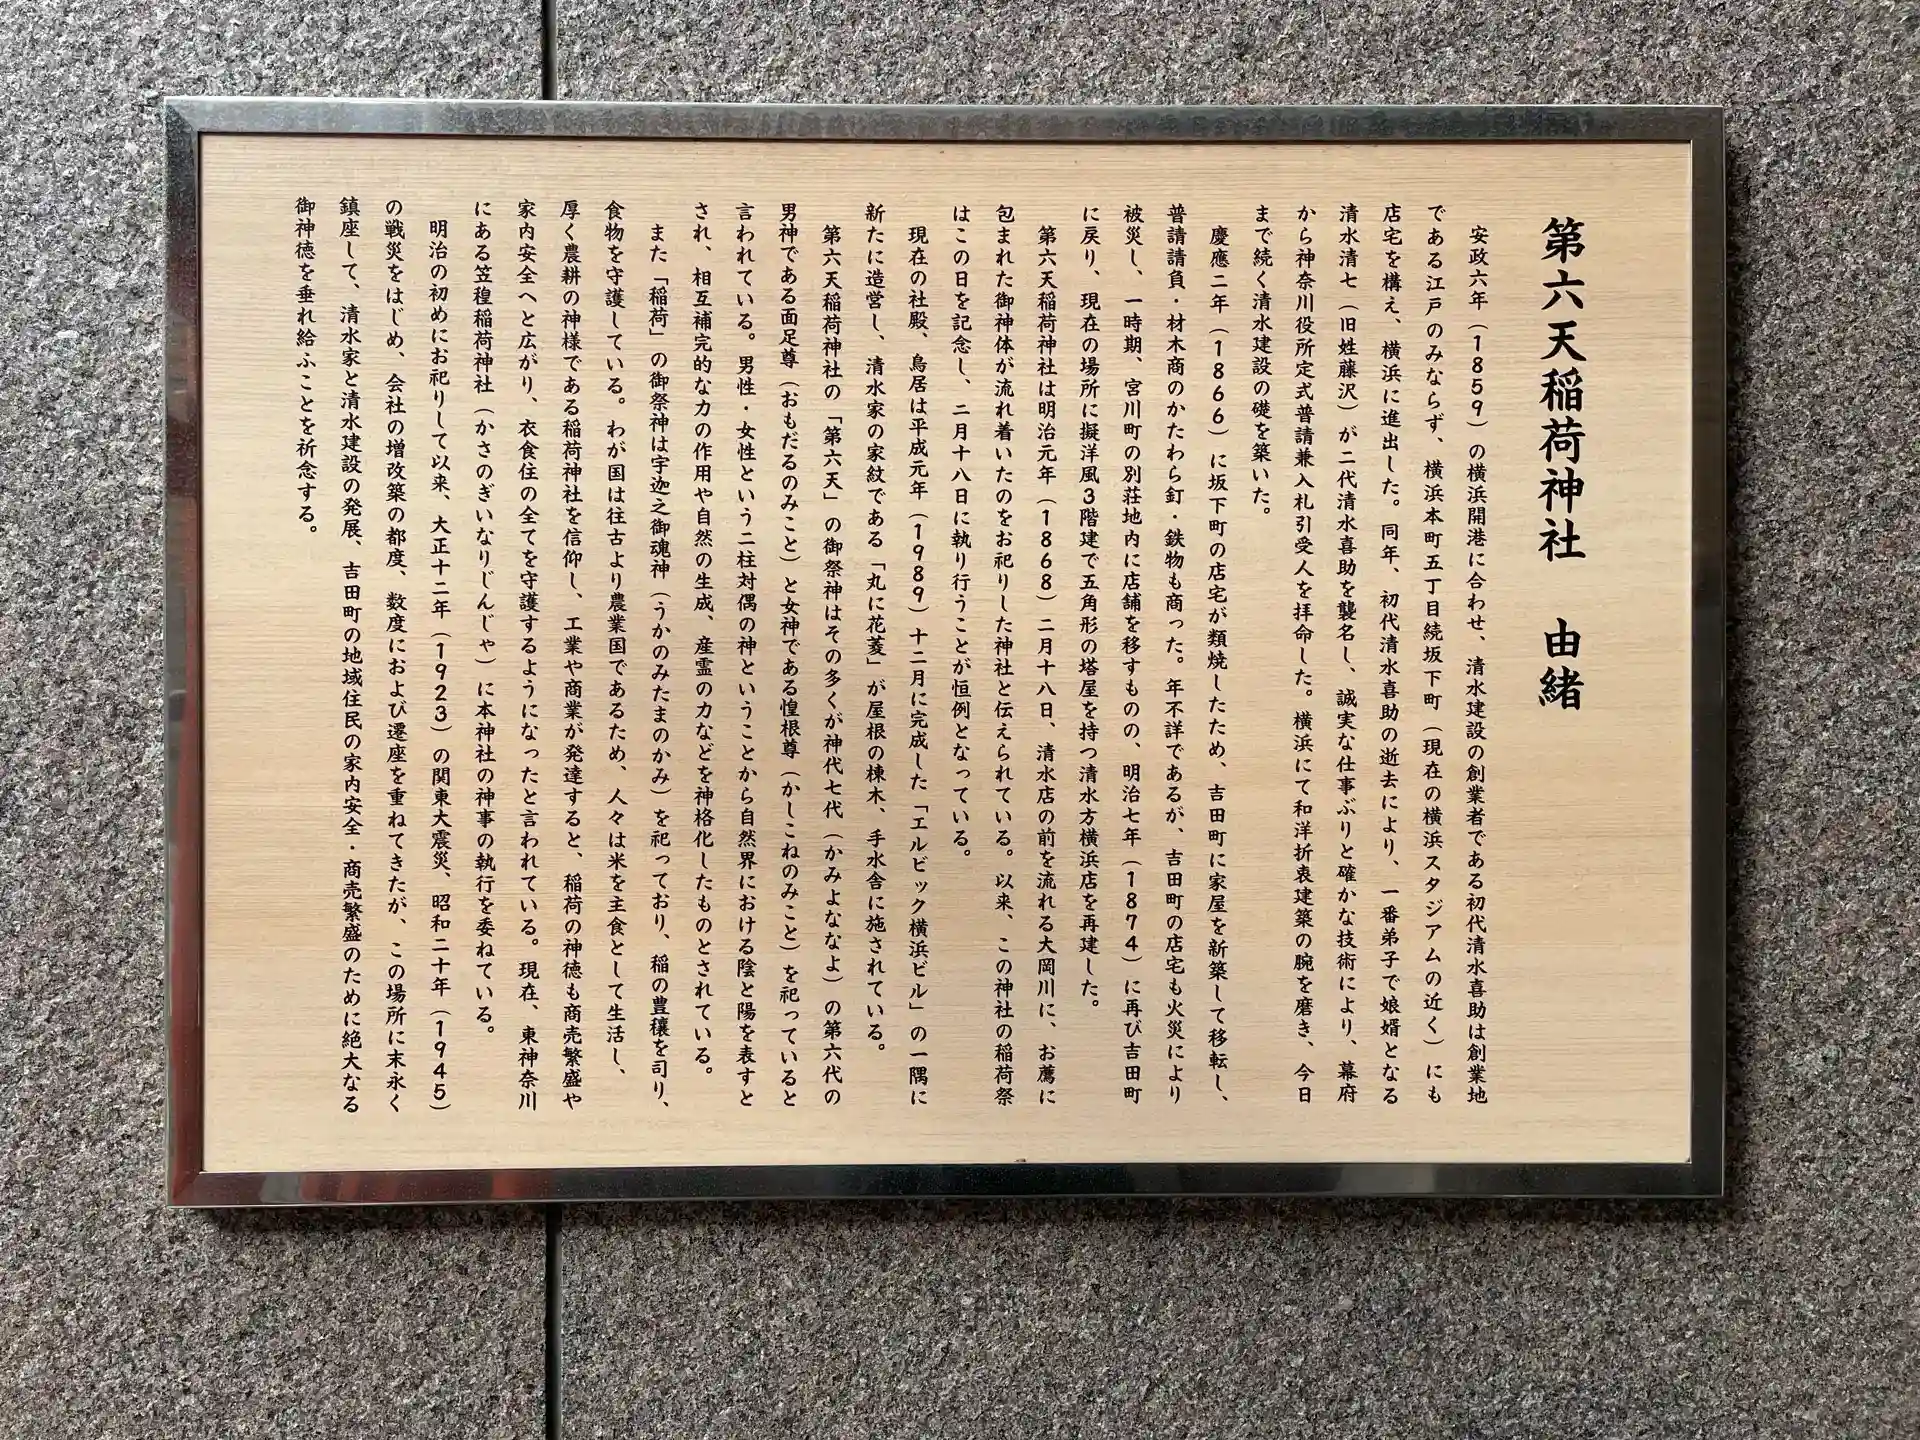 第六天稲荷神社　由緒
安政六年（1859）の横浜開港に合わせ、清水建設の創業者である初代清水喜助は創業地
である江戸のみならず、横浜本町五丁目続坂下町（現在の横浜スタジアムの近く）にも
店宅を構え、横浜に進出した。同年、初代清水喜助の逝去により、一番弟子で娘婿となる
清水清七（旧姓藤沢）が二代清水喜助を襲名し、誠実な仕事ぶりと確かな技術により、幕府
から神奈川役所定式普請兼入札引受人を拝命した。横浜にて和洋折衷建築の腕を磨き、今日
まで続く清水建設の礎を築いた。
慶應二年（1866）に坂下町の店宅が類焼したため、吉田町に家屋を新築して移転し、
普請請負・材木商のかたわら釘・鉄物も商った。年不詳であるが、吉田町の店宅も火災により
被災し、一時期、宮川町の別荘地内に店舗を移すものの、明治七年（1874）に再び吉田町
に戻り、現在の場所に擬洋風3階建で五角形の塔屋を持つ清水方横浜店を再建した。
第六天稲荷神社は明治元年（1868）二月十八日、清水店の前を流れる大岡川に、お薦に
包まれた御神体が流れ着いたのをお祀りした神社と伝えられている。以来、この神社の稲荷祭
はこの日を記念し、二月十八日に執り行うことが恒例となっている。
現在の社殿、鳥居は平成元年（1989）十二月に完成した「エルビック横浜ビル」の一隅に
新たに造営し、清水家の家紋である「丸に花菱」が屋根の棟木、手水舎に施されている。
第六天稲荷神社の「第六天」の御祭神はその多くが神代七代（かみよななよ）の第六代の
男神である面足尊（おもだるのみこと）と女神である惶根尊（かしこねのみこと）を祀っていると
言われている。男性・女性という二柱対偶の神ということから自然界における陰と陽を表すと
され、相互補完的な力の作用や自然の生成、産霊の力などを神格化したものとされている。
また「稲荷」の御祭神は宇迦之御魂神（うかのみたまのかみ）を祀っており、稲の豊穣を司り、
食物を守護している。わが国は往古より農業国であるため、人々は米を主食として生活し、
厚く農耕の神様である稲荷神社を信仰し、工業や商業が発達すると、稲荷の神徳も商売繁盛や
家内安全へと広がり、衣食住の全てを守護するようになったと言われている。現在、東神奈川
にある笠䅣稲荷神社（かさのぎいなりじんじゃ）に本神社の神事の執行を委ねている。
明治の初めにお祀りして以来、大正十二年（1923）の関東大震災、昭和二十年（1945）
の戦災をはじめ、会社の増改築の都度、数度におよび遷座を重ねてきたが、この場所に末永く
鎮座して、清水家と清水建設の発展、吉田町の地域住民の家内安全・商売繁盛のために絶大なる
御神徳を垂れ給ふことを祈念する。